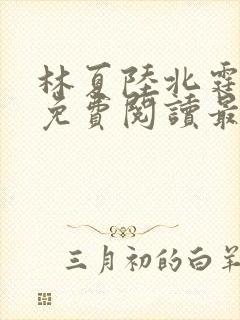 林夏陸北霆
免費閱讀最
三月初的白羊